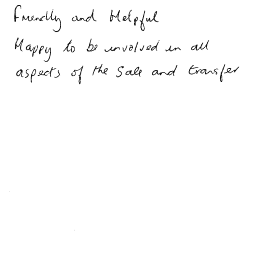 Friendly and Helpful
Happy to be involved in all
aspects of the Sale and transfer